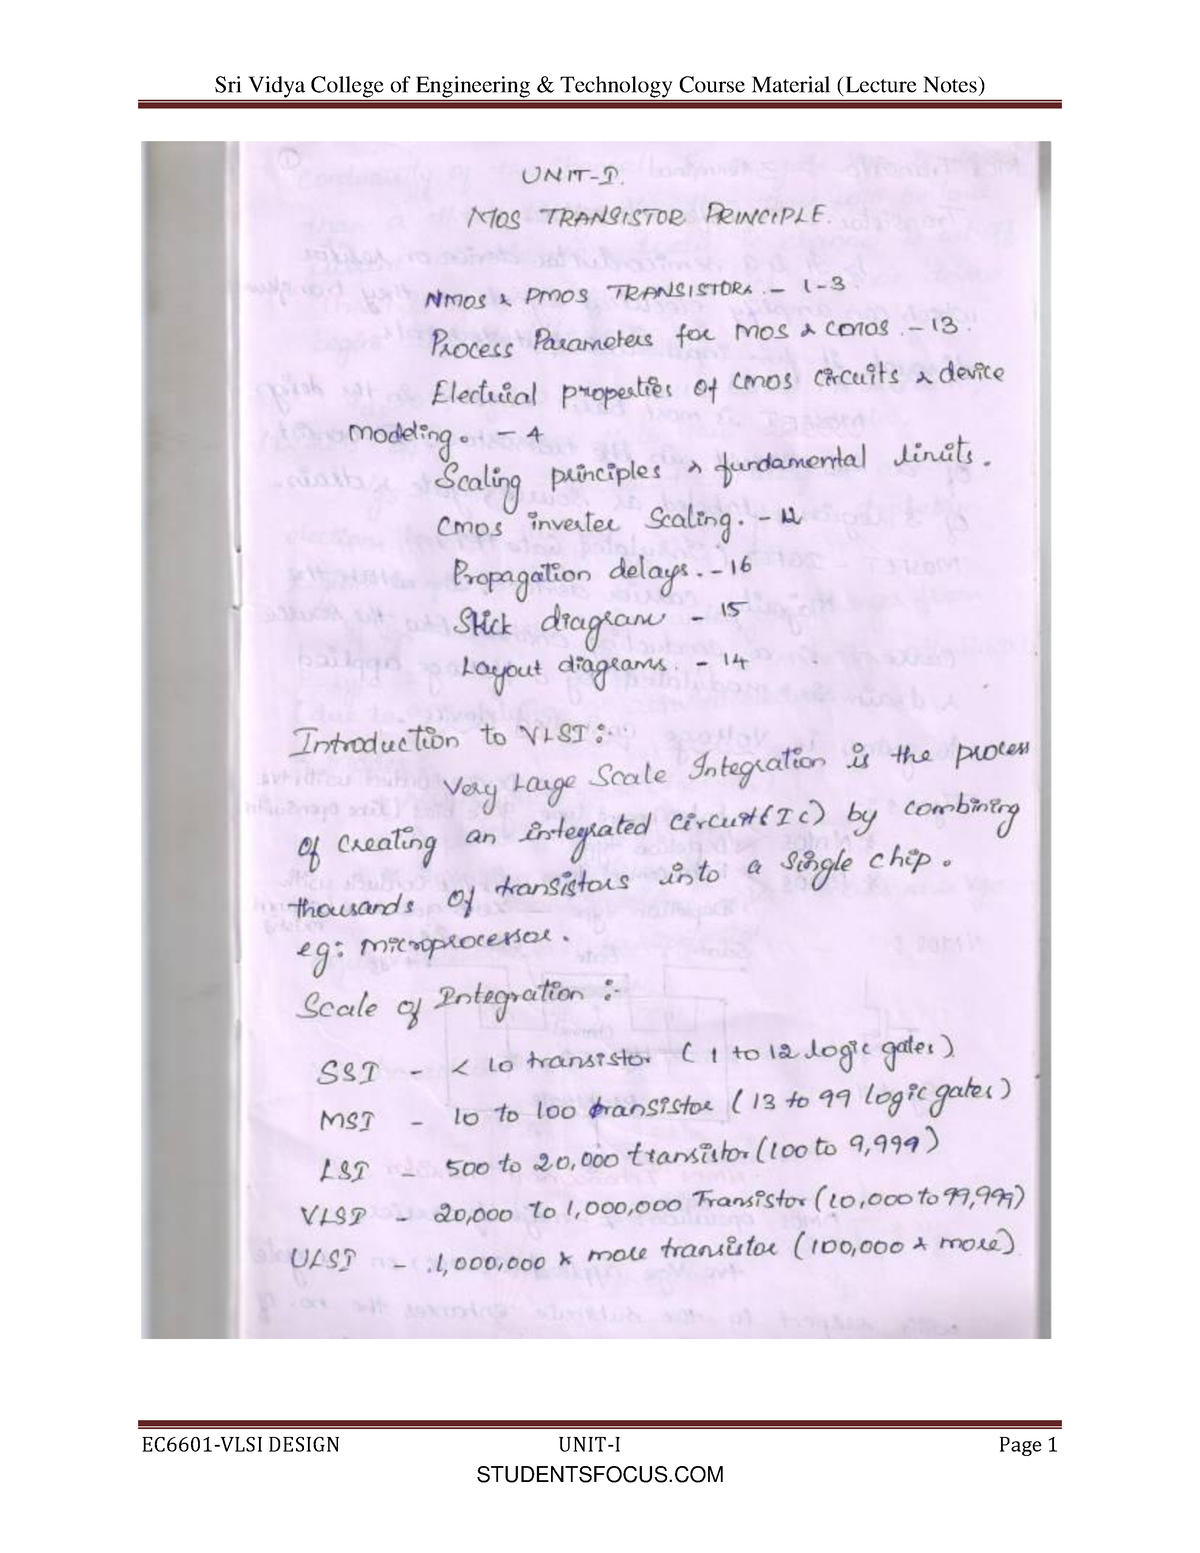 Sri Vidya College of Engineering & Technology Course Material (Lecture Notes)
①
UNIT-I.
MOS TRANSISTOR PRINCIPLE.
NMOS & PMOS TRANSISTORs. - 1-3
Process Parameters for MOS & CMOS. - 13.
Electrical properties of CMOS circuits & device
modeling. - 4
Scaling principles & fundamental limits.
CMOS inverter Scaling. - 12
Propagation delays. - 16
Stick diagram - 15
Layout diagrams. - 14
Introduction to VLSI:-
Very Large Scale Integration is the process
of creating an integrated circuit (IC) by combining
thousands of transistors into a single chip.
eg: microprocessor.
Scale of Integration :-
SSI - < 10 transistor ( 1 to 12 logic gates)
MSI - 10 to 100 transistor ( 13 to 99 logic gates)
LSI - 500 to 20,000 transistor (100 to 9,999)
VLSI - 20,000 to 1,000,000 Transistor (10,000 to 99,999)
ULSI - 1,000,000 & more transistor (100,000 & more)
EC6601-VLSI DESIGN UNIT-I Page 1
STUDENTSFOCUS.COM